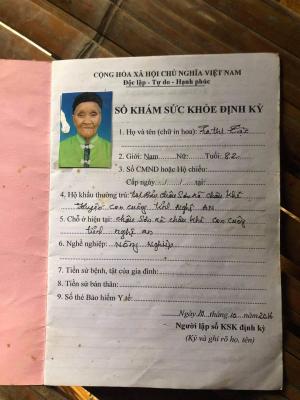 CỘNG HÒA XÃ HỘI CHỦ NGHĨA VIỆT NAM
Độc lập - Tự do - Hạnh phúc
SỔ KHÁM SỨC KHỎE ĐỊNH KỲ
1. Họ và tên (chữ in hoa):
2. Giới: Nam Nữ: Tuổi: 82
3. Số CMND hoặc Hộ chiếu:
Cấp ngày / / tại:
4. Hộ khẩu thường trú: châu Sơn xã châu Khê
con cuông tỉnh Nghệ AN
5. Chỗ ở hiện tại: châu Sơn xã châu Khê con cuông
tỉnh nghệ an
6. Nghề nghiệp: Nông Nghiệp
7. Tiền sử bệnh, tật của gia đình:
8. Tiền sử bản thân:
9. Số thẻ Bảo hiểm Y tế:
Ngày tháng 10 năm 2016
Người lập sổ KSK định kỳ
(Ký và ghi rõ họ, tên)